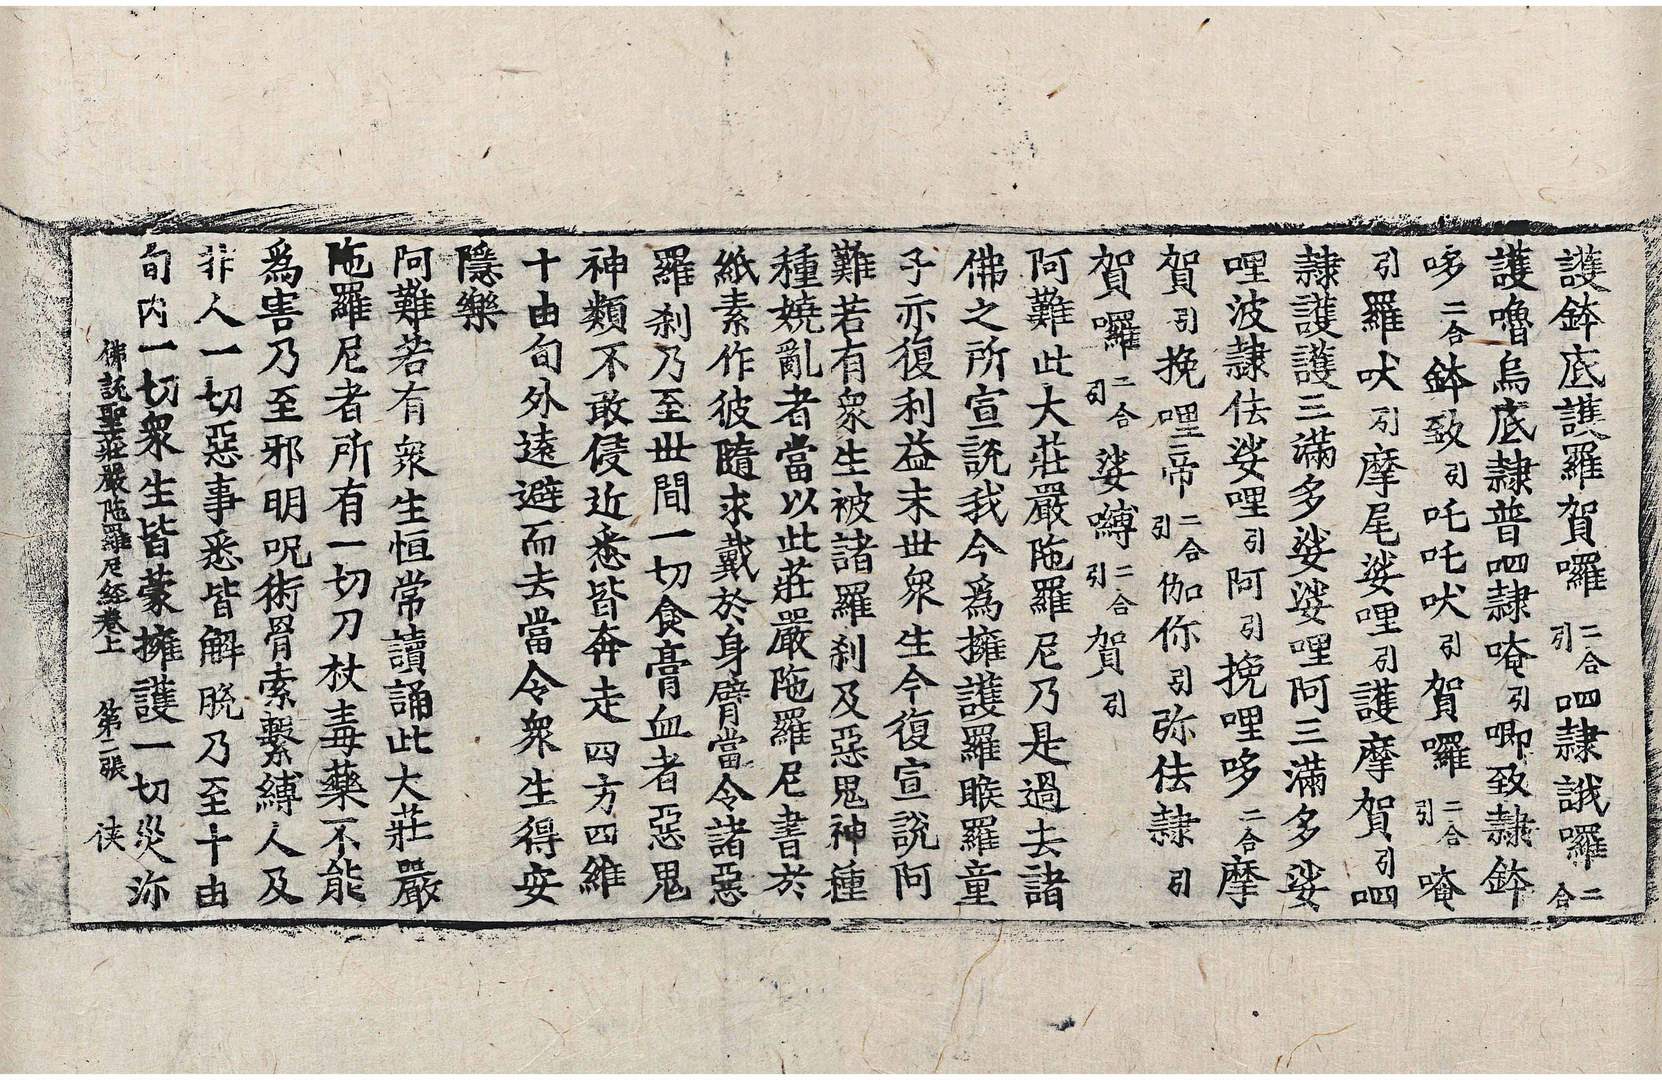 護鉢底護羅賀囉二合引呬隸誐囉二合
護嚕烏底隸普呬隸唵引唧致隸鉢
哆二合鉢致引吒吒吠引賀囉二合引唵
引羅吠引摩尾娑哩引護摩賀引呬
隸護護三滿多娑娑哩阿三滿多娑
哩波隸佉娑哩引阿引挽哩哆二合摩
賀引挽哩帝二合引伽你引弥佉隸引
賀囉二合引娑嚩二合引賀引
阿難此大莊嚴陁羅尼乃是過去諸
佛之所宣說我今爲擁護羅睺羅童
子亦復利益末世衆生今復宣說阿
難若有衆生被諸羅剎及惡鬼神種
種嬈亂者當以此莊嚴陁羅尼書於
紙素作彼隨求戴於身臂當令諸惡
羅剎乃至世間一切食膏血者惡鬼
神類不敢侵近悉皆奔走四方四維
十由旬外遠避而去當令衆生得安
隱樂
阿難若有衆生恒常讀誦此大莊嚴
陁羅尼者所有一切刀杖毒藥不能
爲害乃至邪明呪術骨索繫縛人及
非人一切惡事悉皆解脫乃至十由
旬內一切衆生皆蒙擁護一切災沴
佛說聖莊嚴陁羅尼經卷上 第二張 俠